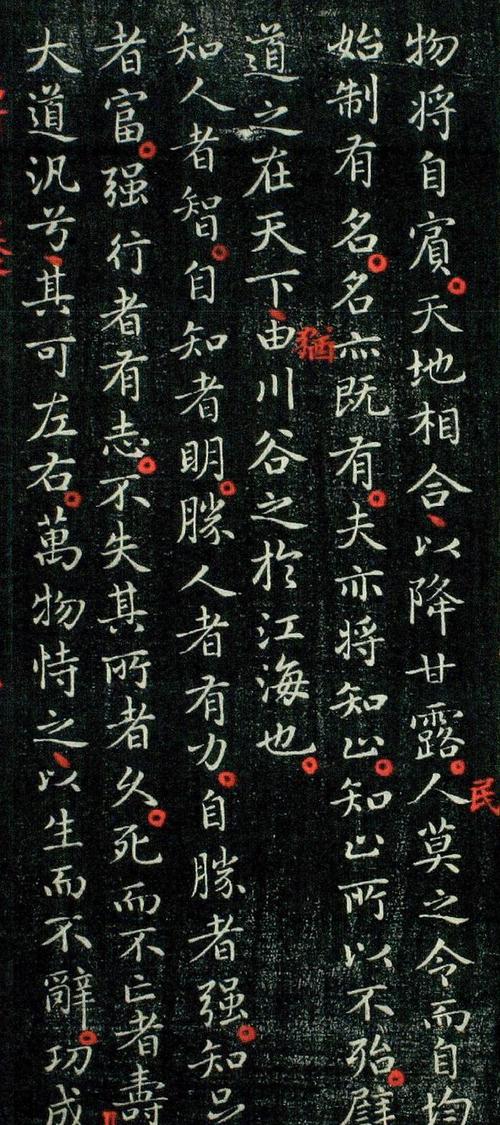 物将自賔。天地相合、以降甘露。人莫之令而自均
民
始制有名。名亦既有。夫亦将知止。知止所以不殆。譬
猶
道之在天下、由川谷之於江海也。
知人者智。自知者明。勝人者有力。自勝者强。知足
者富。强行者有志。不失其所者久。死而不亡者壽
大道汎兮、其可左右。萬物恃之、以生而不辭。功成